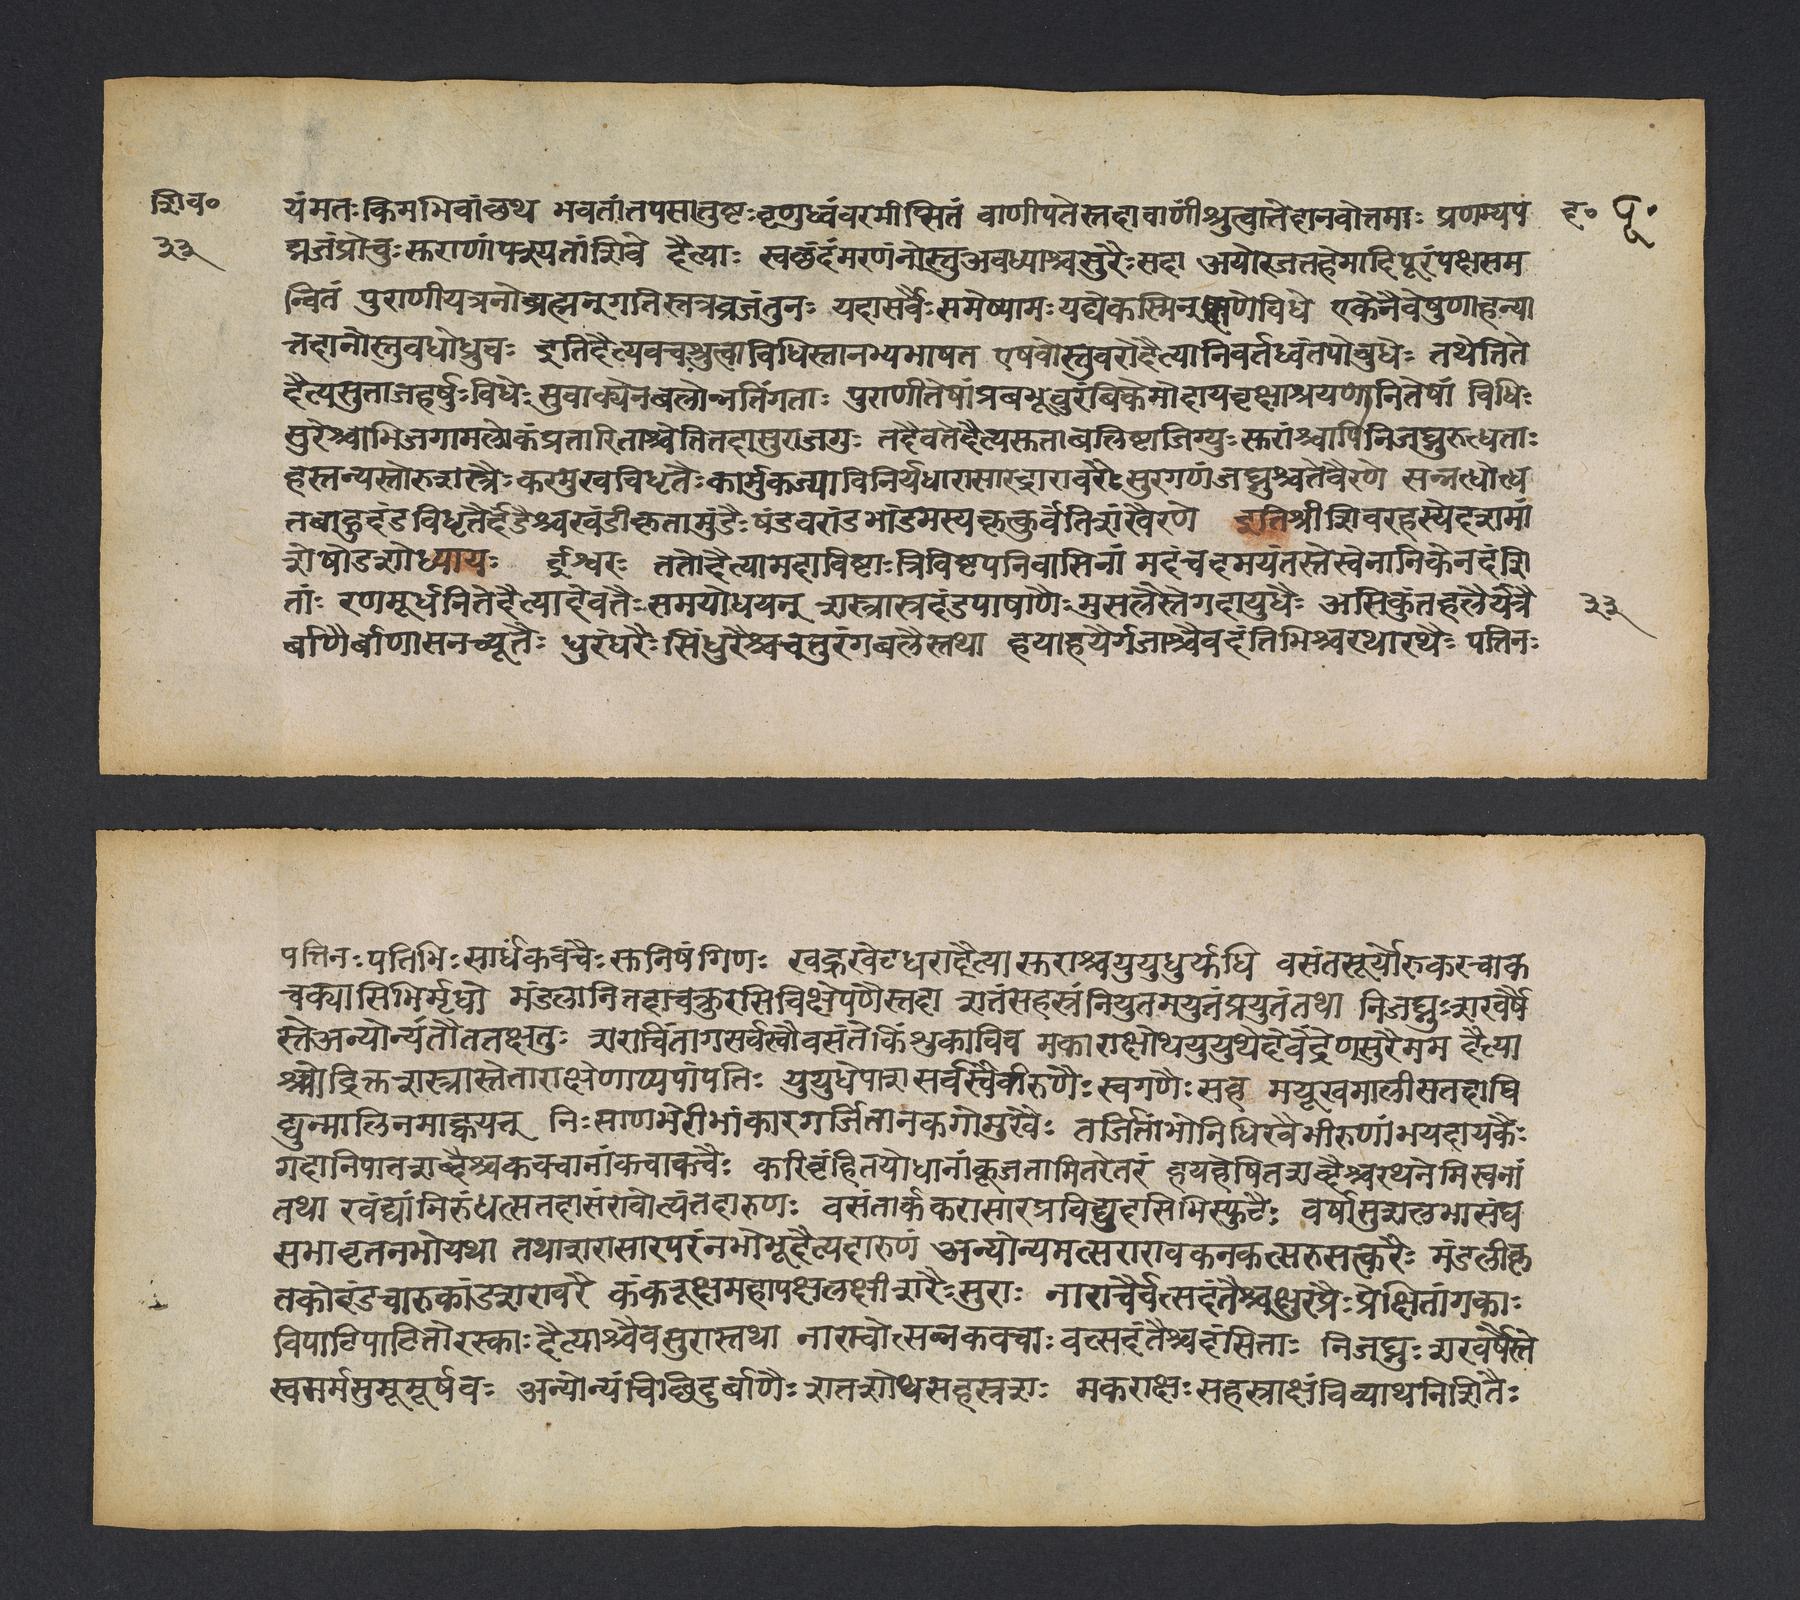 शिव॰
३३
द॰ पू॰
यंमतःकिमभिवांछथ भवतांतपसातुष्टःवृणुध्वंवरमीप्सितं वाणीपतेस्तदावाणींश्रुत्वातेदानवोत्तमाः प्रणम्यप
द्मजंप्रोचुःस्तराणांपश्यतांशिवे दैत्याः स्वछंदंमरणंनोस्तुअवध्याश्चसुरैःसदा अयोरजतहेमादिपूरंपक्षसम
न्वितं पुराणीयत्रनोब्रह्मन्गतिस्तत्रव्रजंतुनः यदासर्वैःसमेष्यामःयद्येकस्मिन्क्षणेविधे एकेनैवेषुणाहन्या
त्तदानोस्तुवधोध्रुवः इतिदैत्यवचःश्रुत्वाविधिस्तानभ्यभाषत एषवोस्तुवरोदैत्यानिवर्तध्वंतपोबुधेः तथेत्तिते
दैत्यसुताजहर्षुःविधेःसुवाक्येनबलोन्नतिंगताः पुराणीतेषांप्रबभूवुरंबिकेमोहायवृक्षाश्रयणानितेषां विधिः
सुरेश्चाभिजगामलोकंप्रतारिताश्चेतितदासुराजगुः तदैवतेदैत्यस्तताबलिष्टाजिग्युःस्तरांश्चापिनिजघ्नुरुत्धताः
हस्तन्यस्तोरुशस्त्रैःकरमुखविधृतैःकार्मुकज्याविनिर्यधारासारद्धारावरैःसुरगणंजघ्नुश्चतेवैरणे सन्नत्धोत्ध
तबाहुदंडविधृतैर्दंडैश्चखंडीकृतामुंडैःषंडवरांडभांडमस्यकृत्कुर्वतिशंखैरणे इतिश्रीशिवरहस्येदशमां
शेषोडशोध्यायः ईश्वरः ततोदैत्यामदाविष्टाःत्रिविष्टपनिवासिनां मदंचदमयंतस्तेस्वेनानिकेनदंशि
ताः रणमूर्धनितेदैत्यादेवतैःसमयोधयन् शस्त्रास्त्रदंडपाषाणैःमुसलैस्तेगदायुधैः असिकुंतहलैर्यंत्रै
र्बाणैर्बाणासनच्यूतैः धुरंधरैःसिंधुरैश्चचतुरंगबलैस्तथा हयाहयैर्गजाश्चैवदंतिभिश्चरथारथैः पत्तिनः
३३
पत्तिनःपतिभिःसार्धंकवचैःस्तनिषंगिणः खड्गखेटधरादैत्यास्तराश्चयुयुधुर्युधि वसंतसूर्योरुकरचाक
चक्यासिभिर्मृधो मंडलानितदाचक्रुरसिविक्षेपणैस्तदा शतंसहस्रंनियुतमयुतंप्रयुतंतथा निजघ्नुःशरवर्षै
स्तेअन्योन्यंतौततक्षतुः शराचितांगसर्वस्वौवसंतेकिंशुकाविव मकाराक्षोथयुयुधेदेवेंद्रेणसुरैमम दैत्या
श्चोद्रिक्तशस्त्रास्त्रेताराक्षेणाप्यपांपतिः युयुधेपाशसर्वस्वैर्वारुणैःस्वगणैःसह मयूखमालीसतदावि
द्युन्मालिनमाह्वयन् निःसाणभेरीभांकारगर्जितानकगोमुखैः तर्जितांभोनिधिरवैभीरुणांभयदायकैः
गदानिपातशब्दैश्चकवचानांकचाकचैः करिबृंहितयोधानांकूजतामितरेतरं हयहेषितशब्दैश्चरथनेमिस्वनां
तथा रवंद्यांनिरुंधत्सतदासंरावोत्यंतदारुणः वसंतार्ककरासारप्रविद्युदसिभिस्फुटैः वर्षासुशलभासंघ
सभावृतनभोयथा तथाशरासारपरंनभोभूद्दैत्यदारुणं अन्योन्यमत्सरारावकनकत्सरुसत्करैः मंडलीकृ
तकोदंडचारुकांडशरावरै कंकवृक्षमहापक्षलक्ष्मीशरैःसुराः नाराचैर्वत्सदंतैश्चक्षुरप्रैःप्रेक्षितांगकाः
विपाटिपाटितोरस्काःदैत्याश्चैवसुरास्तथा नाराचोत्सन्नकवचाःवत्सदंतैश्चदंसिताः निजघ्नुःशरवर्षैस्ते
स्वमर्मसुमूमूर्षवः अन्योन्यंचिछिदुर्बाणैःशतशोथसहस्रशः मकराक्षःसहस्राक्षंविव्याधनिशितैः